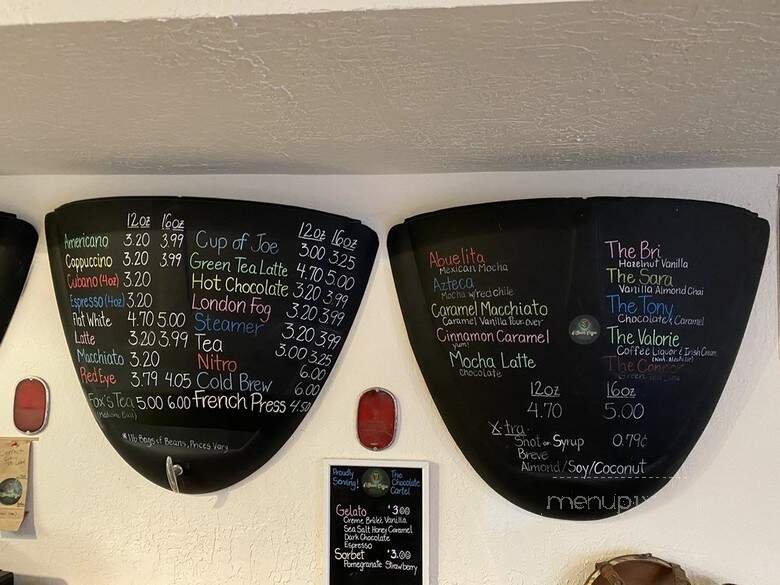 12oz 16oz
Americano 3.20 3.99
Cappuccino 3.20 3.99
Cubano (4oz) 3.20
Espresso (4oz) 3.20
Flat White 4.70 5.00
Latte 3.20 3.99
Macchiato 3.20
Red Eye 3.79 4.05
Fox's Tea 5.00 6.00
*1 lb Bags of Beans, Prices Vary
12oz 16oz
Cup of Joe 3.00 3.25
Green Tea Latte 4.70 5.00
Hot Chocolate 3.20 3.99
London Fog 3.20 3.99
Steamer 3.20 3.99
Tea 3.00 3.25
Nitro 6.00
Cold Brew 6.00
French Press 4.50
Abuelita
Mexican Mocha
Azteca
Mocha w/red chile
Caramel Macchiato
Caramel Vanilla Pour over
Cinnamon Caramel
yum!
Mocha Latte
Chocolate
The Bri
Hazelnut Vanilla
The Sara
Vanilla Almond Chai
The Tony
Chocolate & Caramel
The Valorie
Coffee Liquor & Irish Cream
(Non-Alcoholic)
The Connor
12oz 16oz
4.70 5.00
X-tra
Shot or Syrup 0.79¢
Breve
Almond/Soy/Coconut
Proudly Serving!
The Chocolate Cartel
Gelato $3.00
Creme Brûlée Vanilla
Sea Salt Honey Caramel
Dark Chocolate
Espresso
Sorbet $3.00
Pomegranate Strawberry
menupix